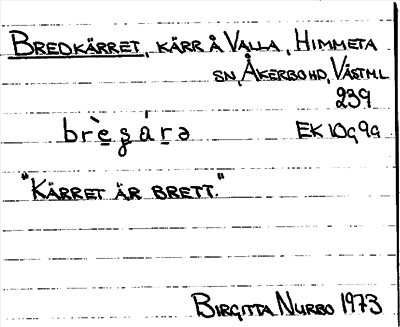 BREDKÄRRET, KÄRR Å VALLA, HIMMETA
SN, ÅKERBO HD, VÄSTML
239
brègárə EK 10g9g
"KÄRRET ÄR BRETT."
BIRGITTA NURBO 1973